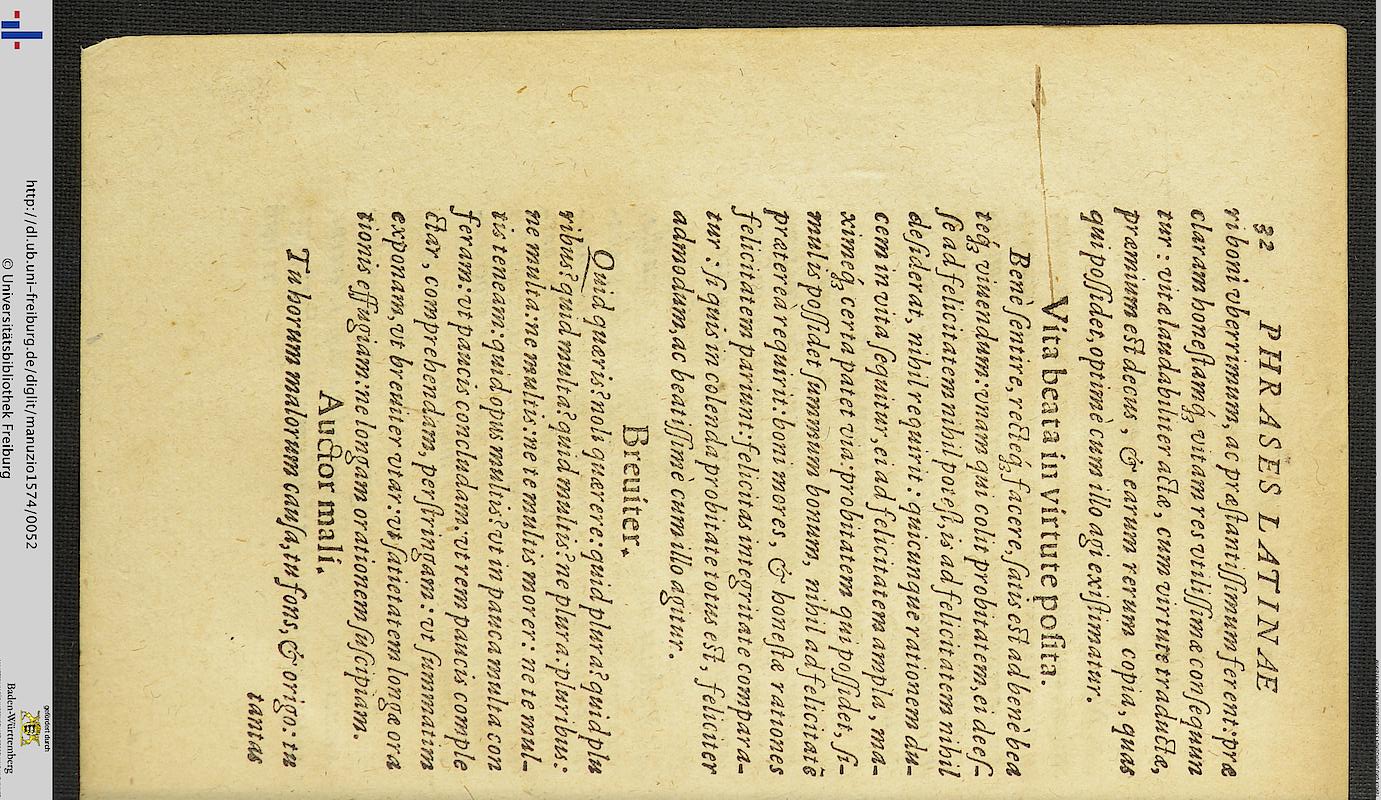 32 PHRASES LATINAE
ri boni vberrimum, ac præstantissimum ferent: præ
claram honestamq́ʒ vitam res vtilissimæ consequun
tur: vitæ laudabiliter actæ, cum virtute traductæ,
præmium est decus, & earum rerum copia, quas
qui possidet, optimè cum illo agi existimatur.
Vita beata in virtute posita.
Benè sentire, recteq́ʒ facere, satis est ad benè bea
teq́ʒ viuendum: vnam qui colit probitatem, ei dees-
se ad felicitatem nihil potest, is ad felicitatem nihil
desiderat, nihil requirit: quicunque rationem du-
cem in vita sequitur, ei ad felicitatem ampla, ma-
ximeq́ʒ certa patet via: probitatem qui possidet, si-
mul is possidet summum bonum, nihil ad felicitatē
præterea requirit: boni mores, & honestæ rationes
felicitatem pariunt: felicitas integritate compara-
tur: si quis in colenda probitate totus est, feliciter
admodum, ac beatissimè cum illo agitur.
Breuiter.
Quid quæris? noli quærere: quid plura? quid plu
ribus? quid multa? quid multis? ne plura: pluribus:
ne multa: ne multis: ne te multis morer: ne te mul-
tis teneam: quid opus multis? vt in pauca multa con
feram: vt paucis concludam: vt rem paucis comple
ctar, comprehendam, perstringam: vt summatim
exponam, vt breuiter vtar: vt satietatem longæ ora
tionis effugiam: ne longam orationem suscipiam.
Auctor mali.
Tu horum malorum causa, tu fons, & origo: tu
tantas
http://dl.ub.uni-freiburg.de/diglit/manuzio1574/0052
© Universitätsbibliothek Freiburg
gefördert durch
Baden-Württemberg